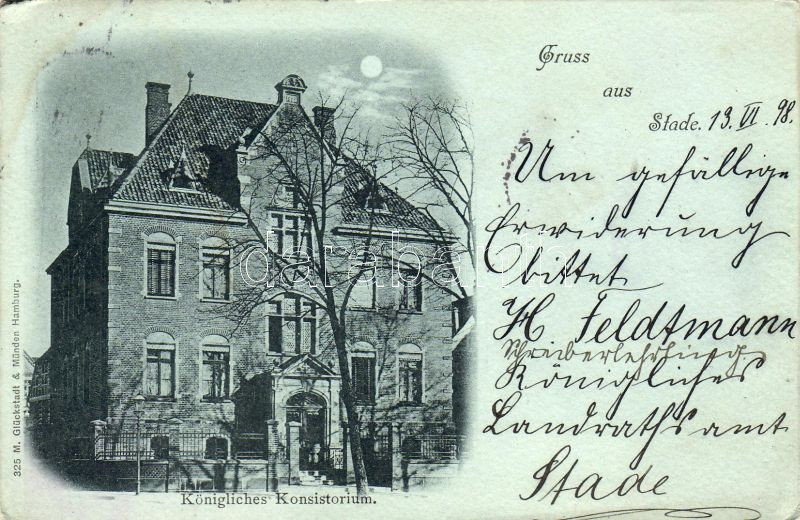 Gruss
aus
Stade. 13. VI. 98.
Um gefällige
Erwiderung
bittet
H Feldtmann
Schreiberlehrling
Königliches
Landrathsamt
Stade
Königliches Konsistorium.
325 M. Glückstadt & Münden Hamburg.
darabanth.com